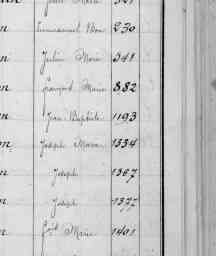 Emmanuel Mar 230
Julien Marie 341
François Marie 882
Jean Baptiste 1193
Joseph Marie 1334
Joseph 1367
Joseph 1377
Marie 1401